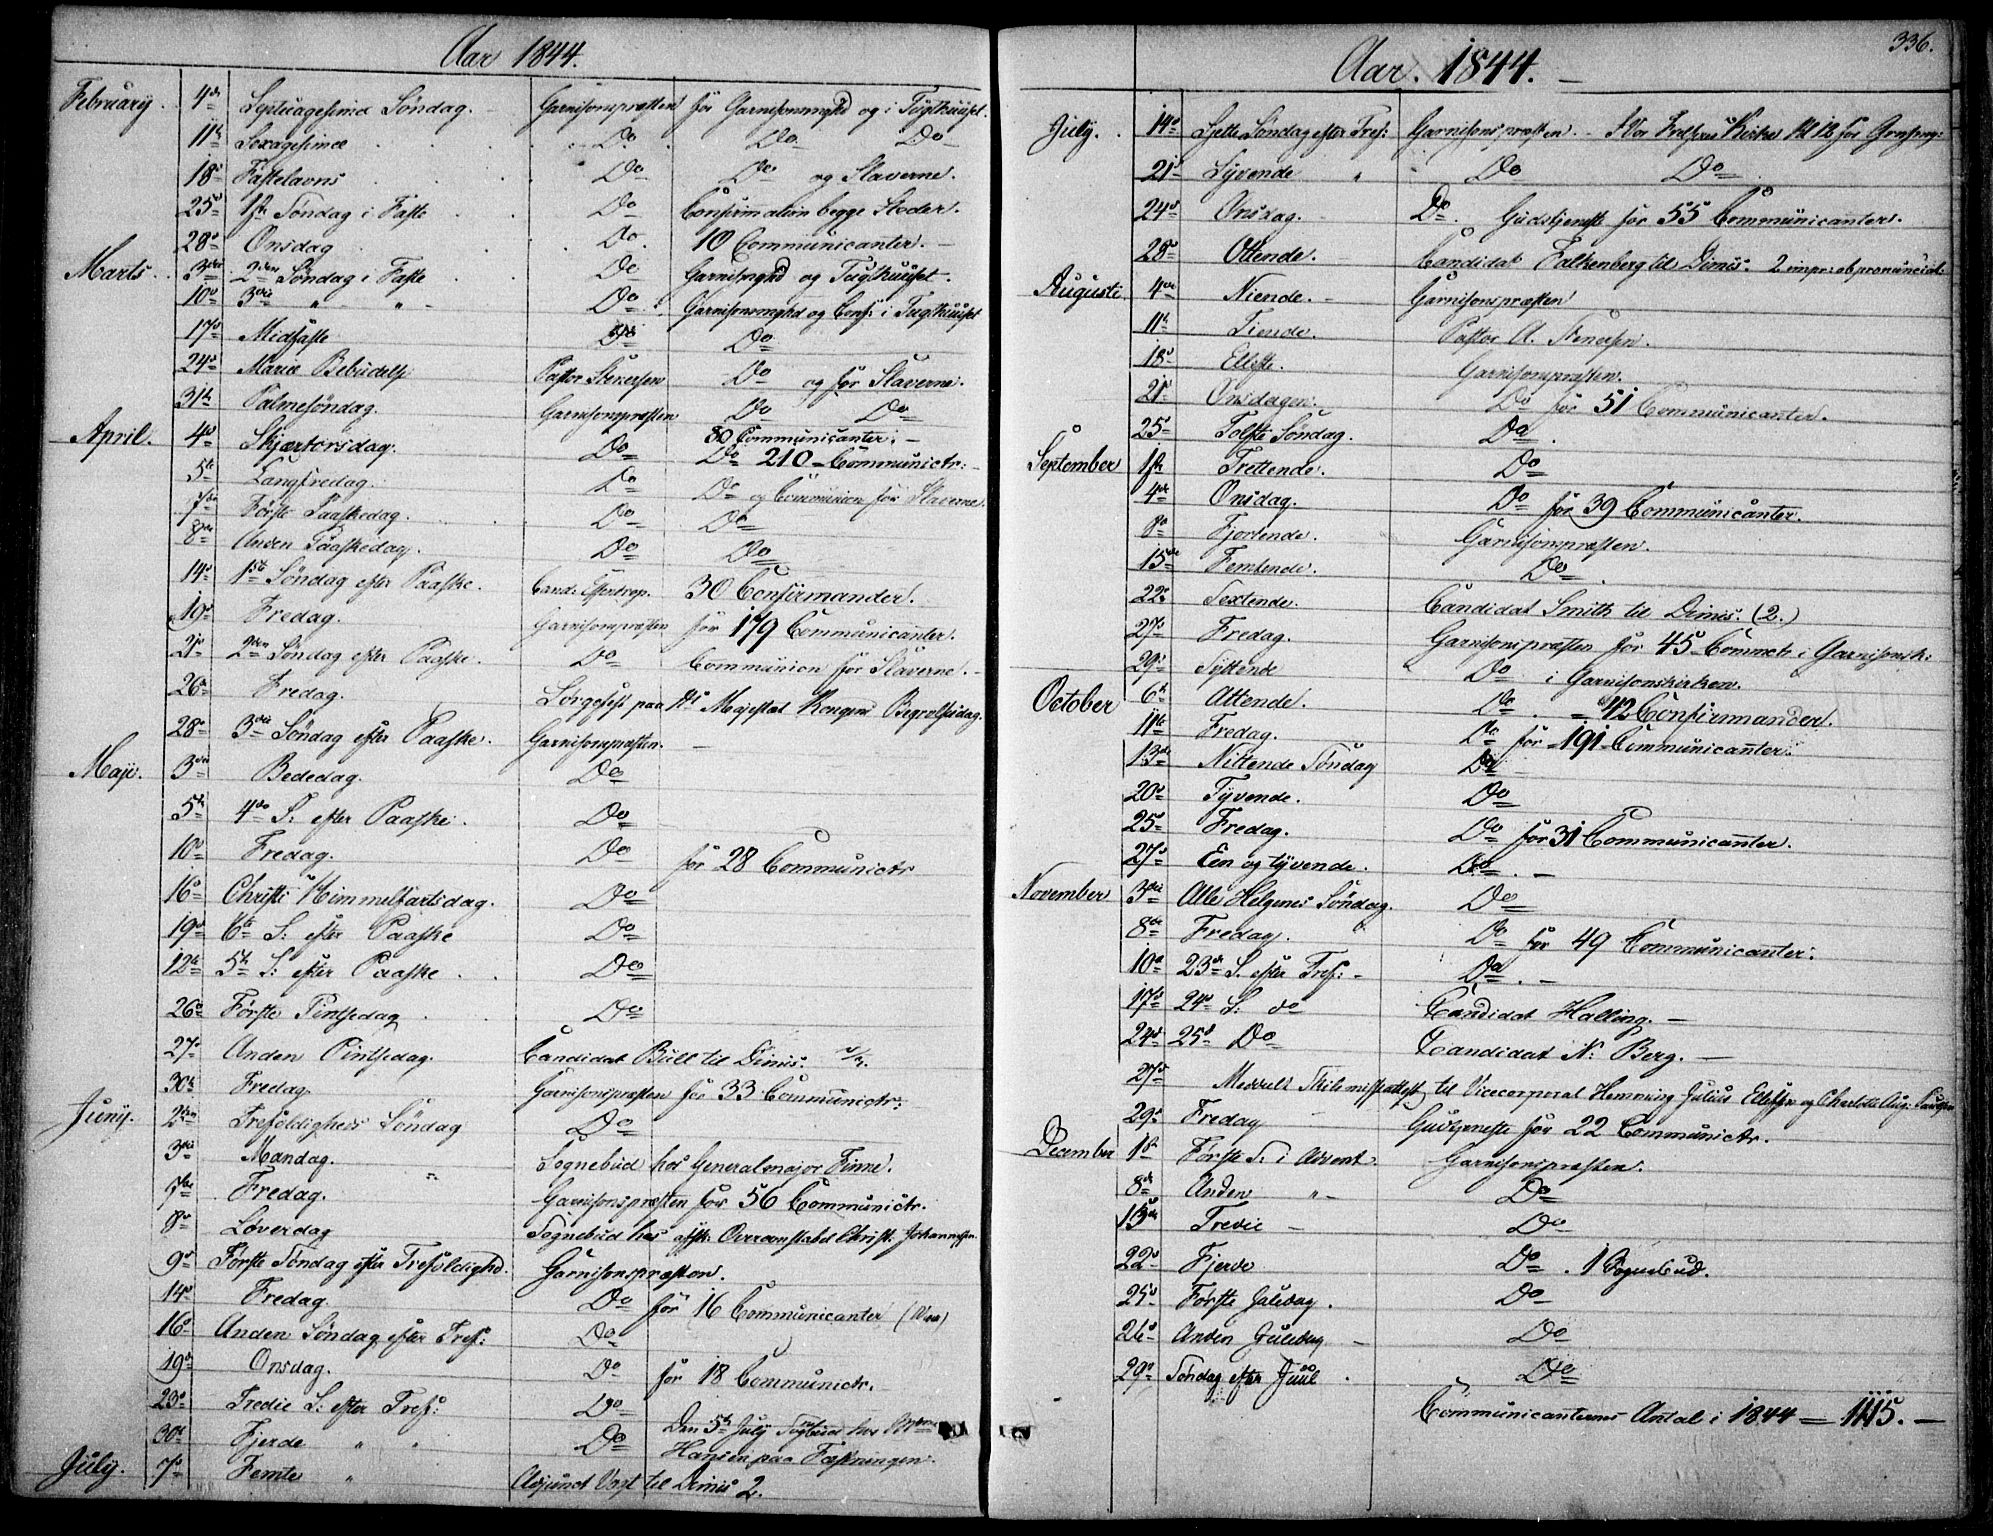 Aar 1844.
February. 4de Septuagesima Søndag. Garnisonspræsten for Garnisonmghd og i Tugthuuset.
11te Sexagesimæ Do Do Do
18de Fastelavns Do Do og Slaverne.
25de 1ste Søndag i Faste Do Confirmation begge Steder.
28de Onsdag Do 10 Communicanter.
Marts. 3die 2den Søndag i Faste Do Garnismghd og Tugthuuset.
10de 3die " " Do Garnisonsmghd og Conf: i Tugthuuset
17de Midfaste Do Do
24de Mariæ Bebudelse Pastor Stenersen Do og for Slaverne.
31te Palmesøndag. Garnisonspræsten Do Do
April. 4de Skjærtorsdag. Do 80 Communicanter.
5te Langfredag. Do Do 210 Communictr:
7de Første Paaskedag. Do Do og Communion for Slaverne.
8de Anden Paaskedag. Do Do
14de 1ste Søndag efter Paaske. Cand: Esmtrop. Do
19de Fredag. Garnisonspræsten 30 Confirmander.
21de 2den Søndag efter Paaske. Do for 179 Communicanter.
26de Fredag. Communion for Slaverne.
Sørgefest paa Hs Majestæt Kongens Begravelsesdag.
28de 3die Søndag efter Paaske. Garnisonspræsten.
Maji. 3die Bededag. Do
5te 4de S: efter Paaske. Do
10de Fredag. Do for 28 Communictr
16de Christi Himmelfartsdag. Do
19de 6te S: efter Paaske Do
12te 5te S: efter Paaske Do
26de Første Pintsedag Do
27de Anden Pintsedag. Candidat Bull til Dimis:
30te Fredag Garnisonspræsten for 33 Communictr:
Junij. 2den Trefoldigheds Søndag Do
3die Mandag. " Sognebud hos Generalmajor Finne.
7de Fredag. Garnisonspræsten for 56 Communictr.
8de Løverdag Sognebud hos Overconstabel Christ. Johannesen.
9de Første Søndag efter Trefoldighd. Garnisonspræsten.
14de Fredag. Do for 16 Communicanter
16de Anden Søndag efter Tref: Do
19de Onsdag. Do for 18 Communictr.
23de Tredie S: efter Tref: Do
30te Fjerde " " Do Den 5te July Sognebud hos
July. 7de Femte " Hansen paa Fæstningen.
Adjunct Vogt til Dimis 2.
336.
Aar. 1844.
July. 14de Sjette Søndag efter Tref: Garnisonspræsten. I Vor Frelsers Kirke Kl 12 for Grnsmg:
21de Syvende " Do Do
24de Onsdag. Do Gudstjeneste for 55 Communicanter.
28de Ottende. Candidat Falkenberg til Dimis:
Augusti 4de Niende. Garnisonspræsten
11te Tiende. Pastor A. Stenersen.
18de Ellefte. Garnisonspræsten.
21de Onsdagen. Do for 51 Communicanter.
25de Tolfte Søndag. Do
September 1ste Trettende. Do
4de Onsdag. Do for 39 Communicanter.
8de Fjortende. Garnisonspræsten.
15de Femtende. Do
22de Sextende. Candidat Smith til Dimis: (2.)
27de Fredag. Garnisonspræsten for 45 Commctr i Garnisonsk:
29de Syttende Do i Garnisonskirken.
October 6te Attende. Do 42 Confirmander.
11te Fredag. Do for 191 Communicanter.
13de Nittende Søndag Do
20de Tyvende. Do
25de Fredag. Do for 31 Communicanter.
27de Een og tyvende. Do
November 3die Alle Helgenes Søndag. Do
8de Fredag. Do for 49 Communicanter:
10de 23de S. efter Tref: Do
17de 24de S: do Candidat Halling.
24de 25de Do Candidat N: Berg.
27de Meddelt Skilsmisseattest til Vicecorporal Hemming Julius Ellefsen og Charlotte Aug:
29de Fredag Gudstjeneste for 22 Communictr.
December 1ste Første S: i Advent. Garnisonspræsten.
8de Anden " Do
15de Tredie Do
22de Fjerde Do. 1 Sognebud.
25de Første Juledag. Do
26de Anden Juledag Do
29de Søndag efter Juul Do
Communicanternes Antal i 1844 = 1115.